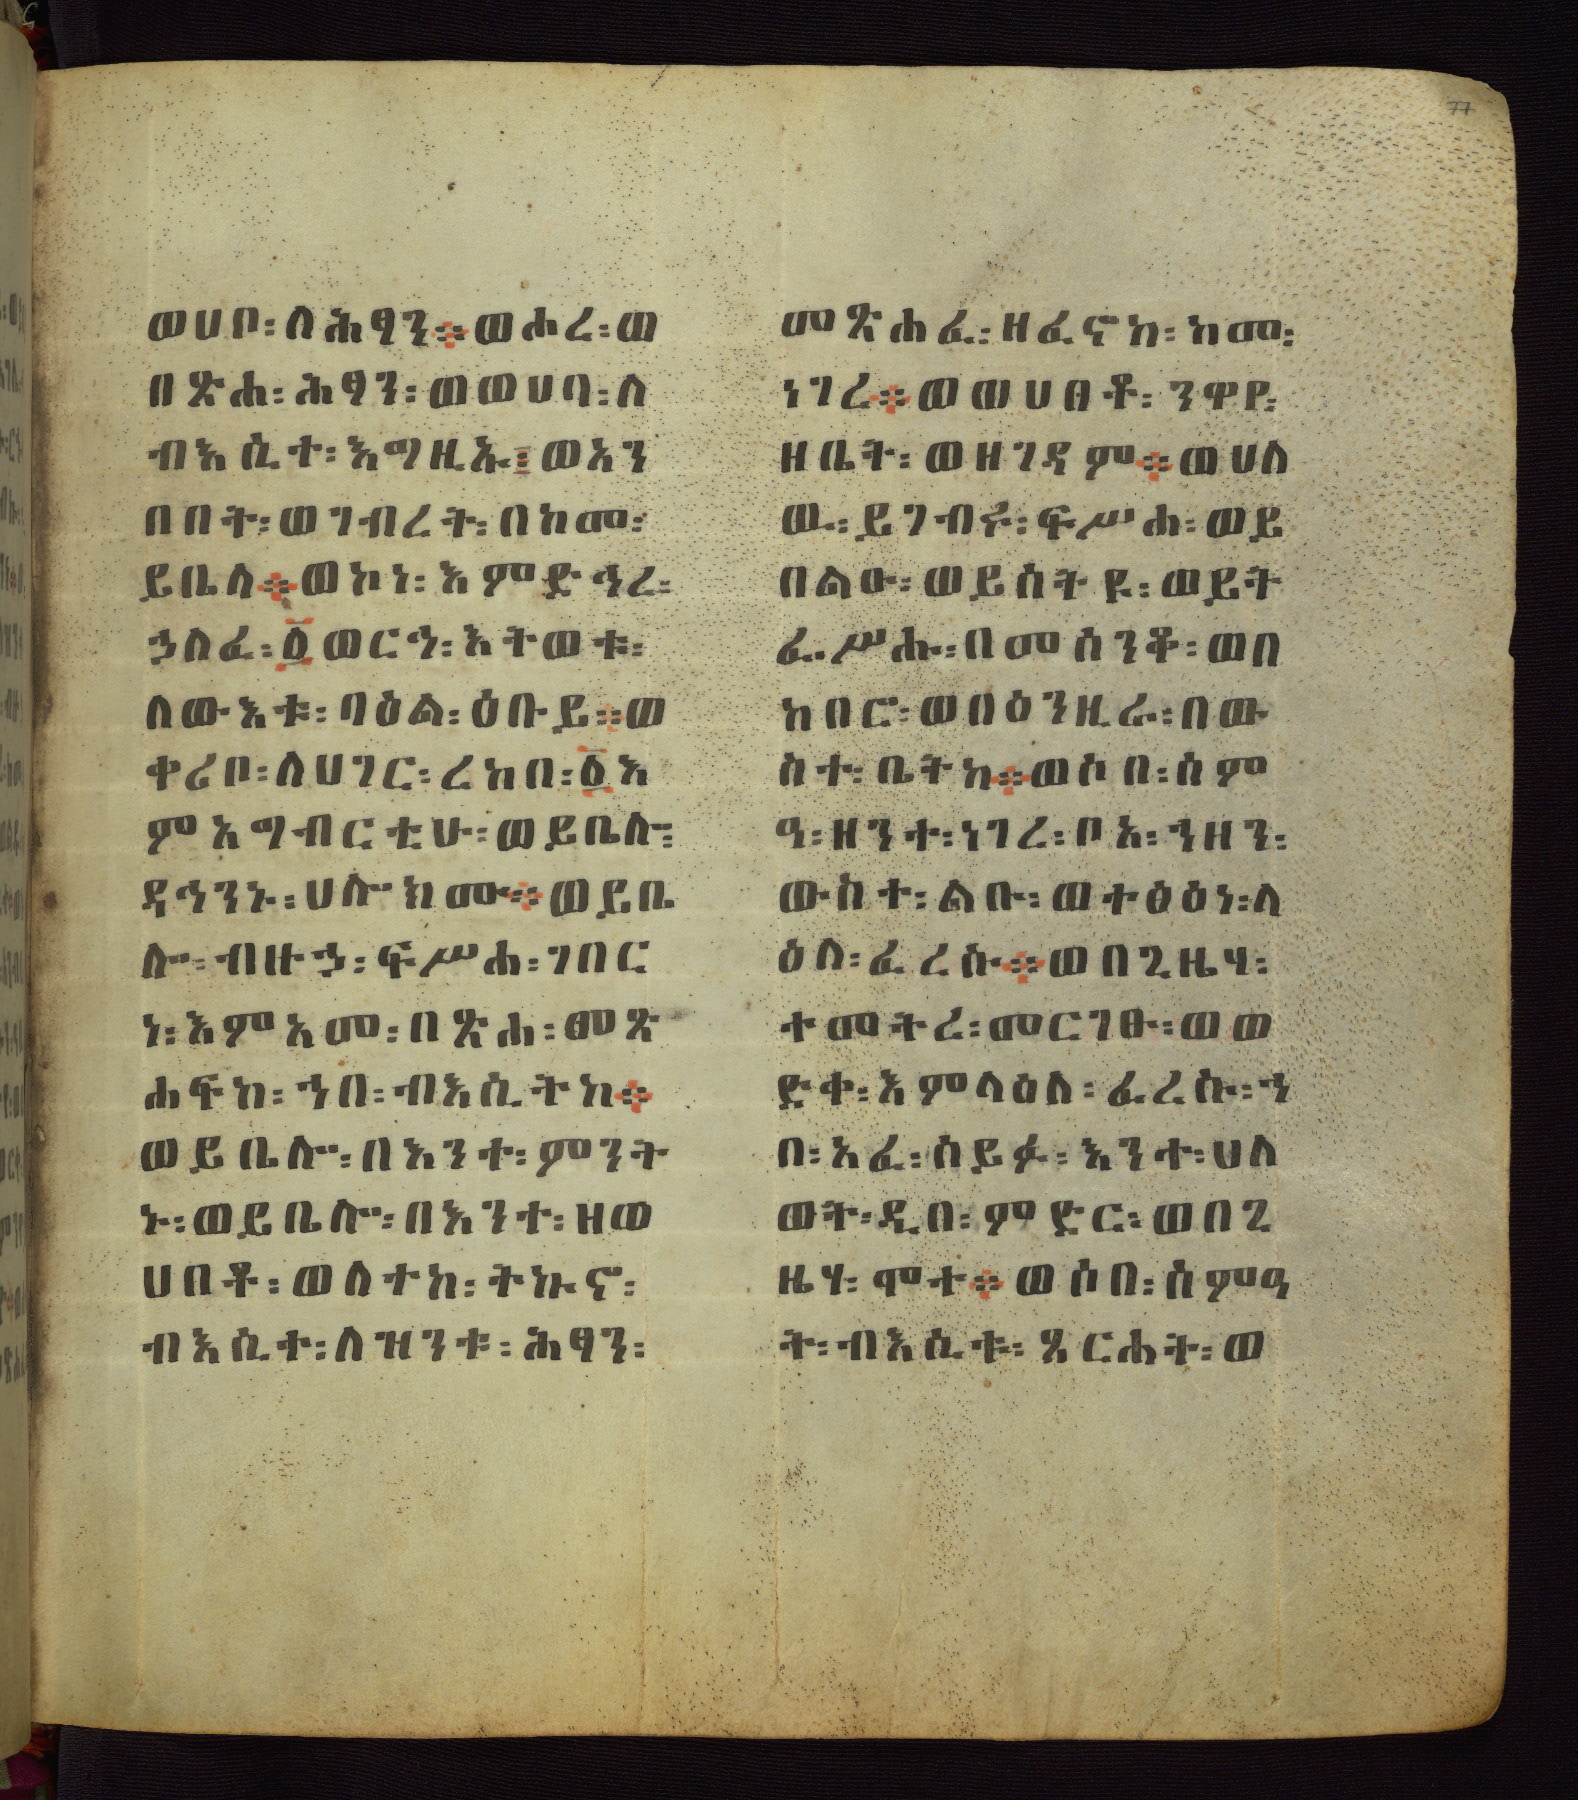 ወሀቦ፡ለሕፃን፨ወሖረ፡ወ
በጽሐ፡ሕፃን፡ወወሀባ፡ለ
ብእሲተ፡እግዚኡ፤ወአን
በበት፡ወገብረት፡በከመ፡
ይቤላ፨ወኮነ፡እምድኅረ፡
ኃለፈ፡፩ወርኅ፡አትወቱ፡
ለውእቱ፡ባዕል፡ዕቡይ፨ወ
ቀሪቦ፡ለሀገር፡ረከበ፡፩እ
ምአግብርቲሁ፡ወይቤሎ፡
ዳኅንኑ፡ሀሎክሙ፨ወይቤ
ሎ፡ብዙኃ፡ፍሥሐ፡ገበር
ነ፡እምአመ፡በጽሐ፡መጽ
ሐፍከ፡ኀበ፡ብእሲትከ፨
ወይቤሎ፡በእንተ፡ምንት
ኑ፡ወይቤሎ፡በእንተ፡ዘወ
ሀበቶ፡ወለተከ፡ትኩኖ፡
ብእሲተ፡ለዝንቱ፡ሕፃን፡
መጽሐፈ፡ዘፈኖከ፡ከመ፡
ነገረ፨ወወሀፀቶ፡ንዋየ፡
ዘቤት፡ወዘገዳም፨ወሀለ
ዉ፡ይገብሩ፡ፍሥሐ፡ወይ
በልዑ፡ወይሰትዩ፡ወይት
ፌሥሑ፡በመሰንቆ፡ወበ
ከበሮ፡ወበዕንዚራ፡በው
ስተ፡ቤትከ፨ወሶበ፡ሰም
ዓ፡ዘንተ፡ነገረ፡ቦአ፡ኀዘን፡
ውስተ፡ልቡ፡ወተፅዕነ፡ላ
ዕለ፡ፈረሱ፨ወበጊዜሃ፡
ተመትረ፡መርገፁ፡ወወ
ድቀ፡እምላዕለ፡ፈረሱ፡ኀ
በ፡አፈ፡ሰይፉ፡እንተ፡ሀለ
ወት፡ዲበ፡ምድር፡ወበጊ
ዜሃ፡ሞተ፨ወሶበ፡ሰምዓ
ት፡ብእሲቱ፡ጼርሐት፡ወ